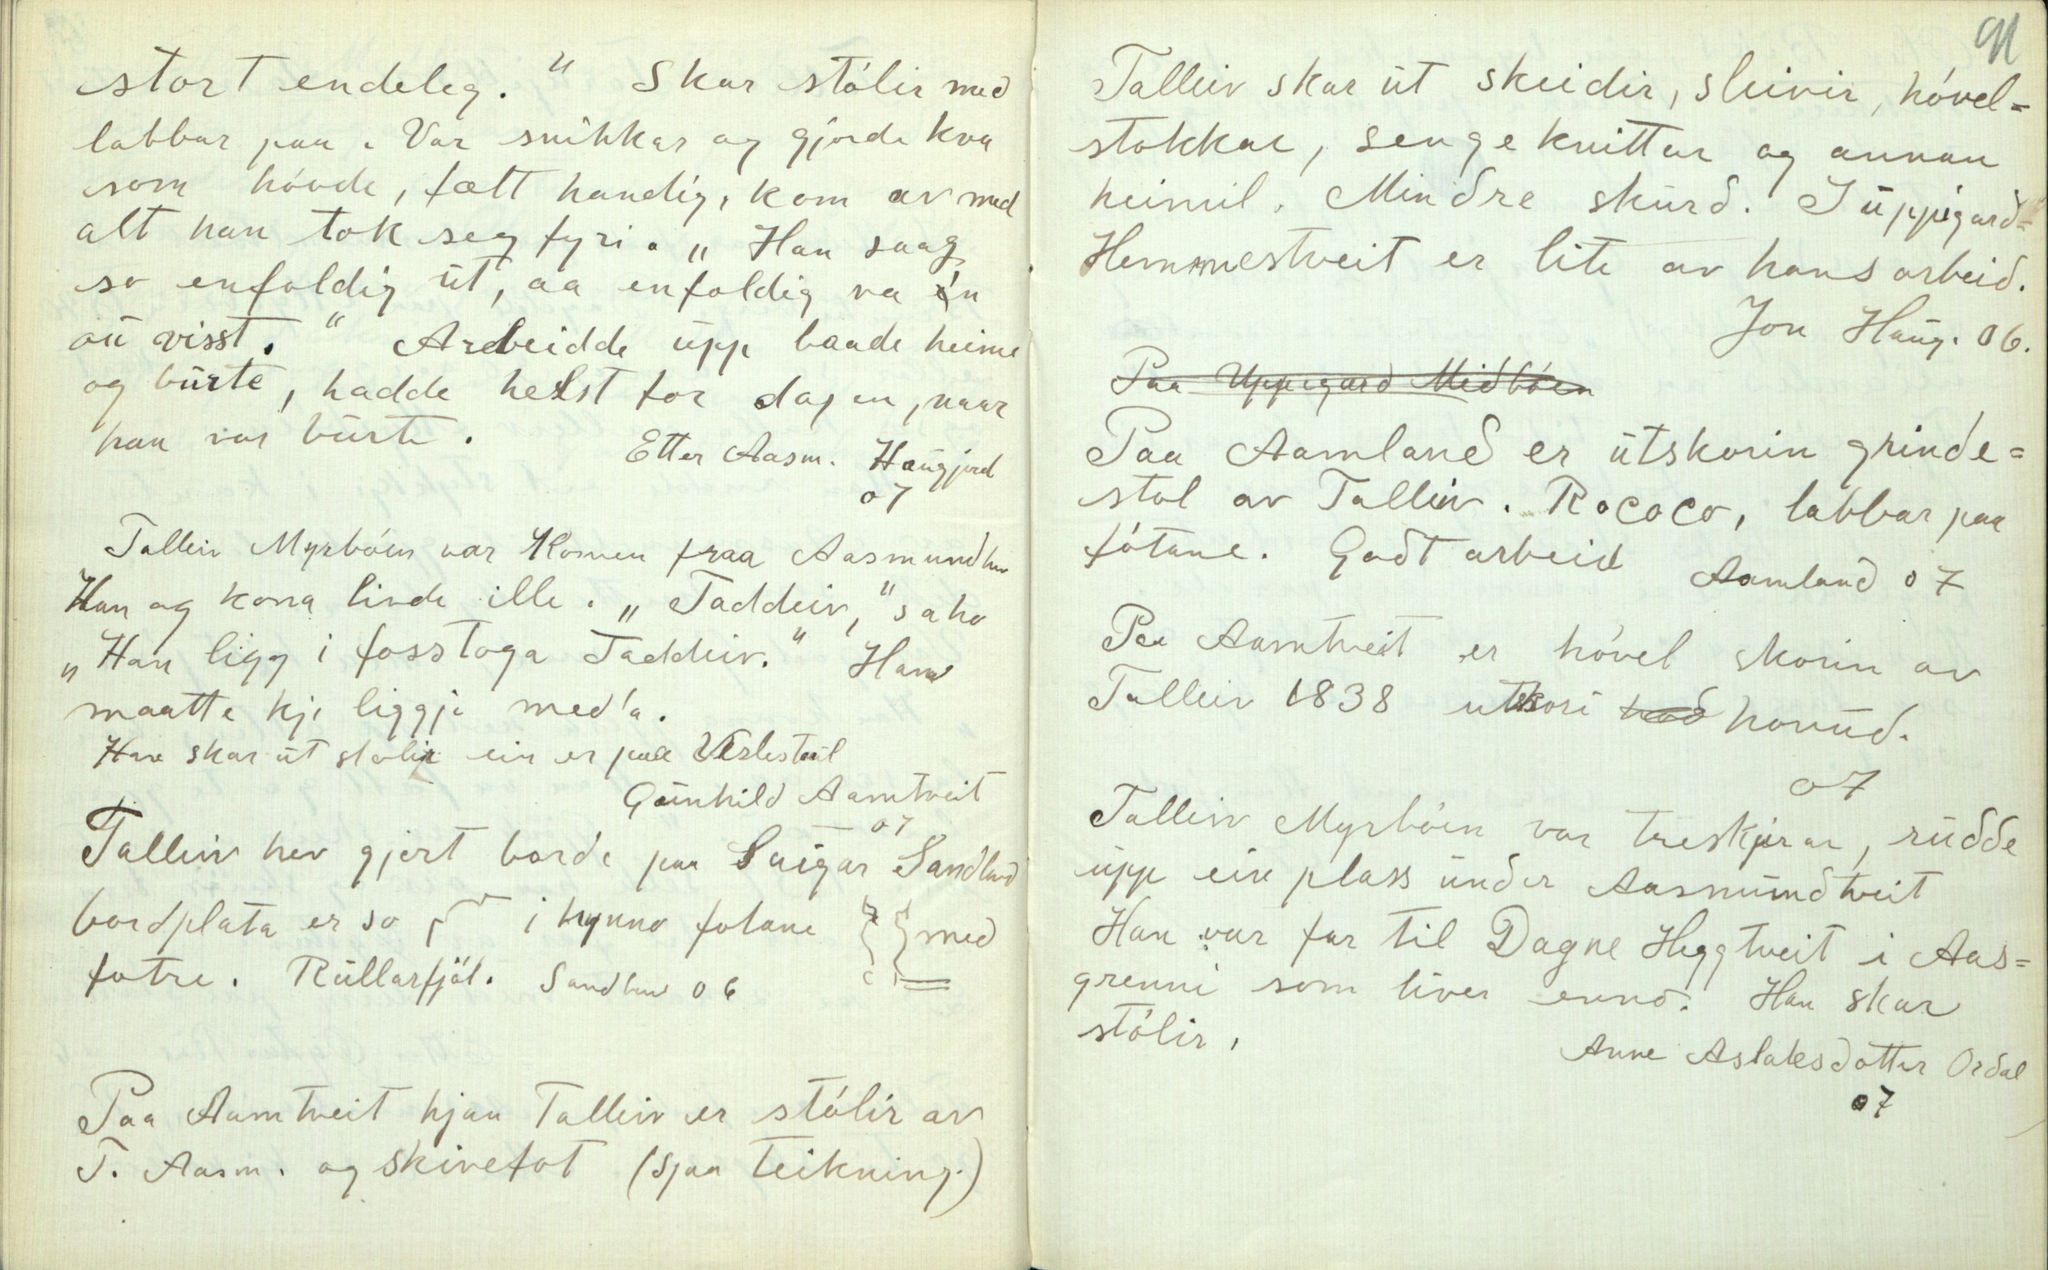 stort endeleg." Skar stólir med
labbar paa. Var snikkar og gjorde kva
som hóvde, fælt handig, kom av med
alt han tok seg fyri. „Han saag
so enfoldig út, aa enfoldig va 'n
ou visst." Arbeidde upp baade heime
og burte, hadde helst for dagen, naar
han var burte.
Etter Aasm. Haugjord
07
Talleiv Myrbóen var komen fraa Aasmundtv
Han og kona livde ille. „Taddeiv," sa ho
„Han ligg i fosstoga Taddeiv." Han
maatte kje liggje med'a.
Han skar út stolir ein er paa Veslestaul
Gunhild Aamtveit
07
Talleiv hev gjort borde paa Suigar Sandland
bordplata er so i hynno fotane med
fotre. Rullarfjól. Sandland 06
Paa Aamtveit hjaa Talleiv er stólir av
T. Aasm. og skivefot (sjaa teikning.)
91
Talleiv skar út skeidir, sleivir, hóvel-
stokkar, sengeknittar og annan
heimil. Mindre skurd. I uppigard-
Hemmestveit er lite av hans arbeid.
Jon Haug. 06.
Paa Uppigard Midbóen
Paa Aamland er útskorin grinde-
stol av Talleiv. Rococo, labbar paa
fótane. Godt arbeid Aamland 07
Paa Aamtveit er hóvel skorin av
Talleiv 1838 utskori hovud.
07
Talleiv Myrbóen var treskjerar, rudde
upp ein plass under Aasmundtveit
Han var far til Dagne Heggtveit i Aas-
grenni som liver enno. Han skar
stólir.
Anne Aslaksdotter Ordal
07